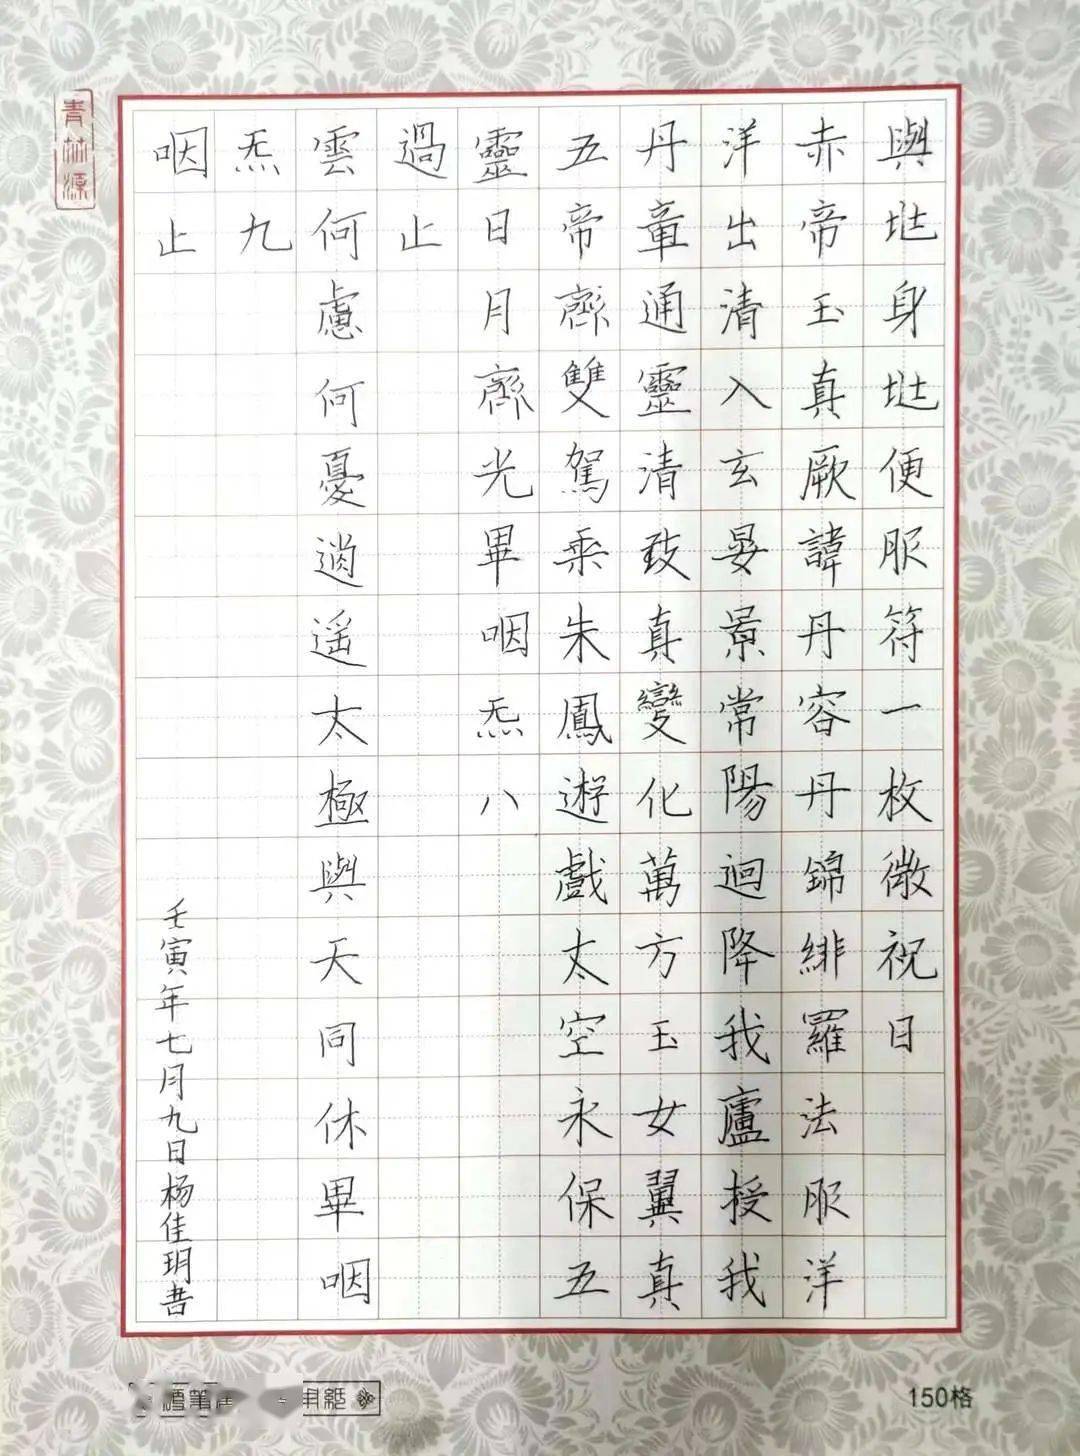 與㘴身㘴便服符一枚微祝日
赤帝玉真厥諱丹容丹錦緋羅法服洋
洋出清入玄晏景常陽迴降我廬授我
丹章通靈清致真變化萬方玉女翼真
五帝齊雙駕乘朱鳳遊戲太空永保五
靈日月齊光畢咽炁八
過止
雲何慮何憂逍遥太極與天同休畢咽
炁九
咽止
壬寅年七月九日杨佳玥書
青林源
150格